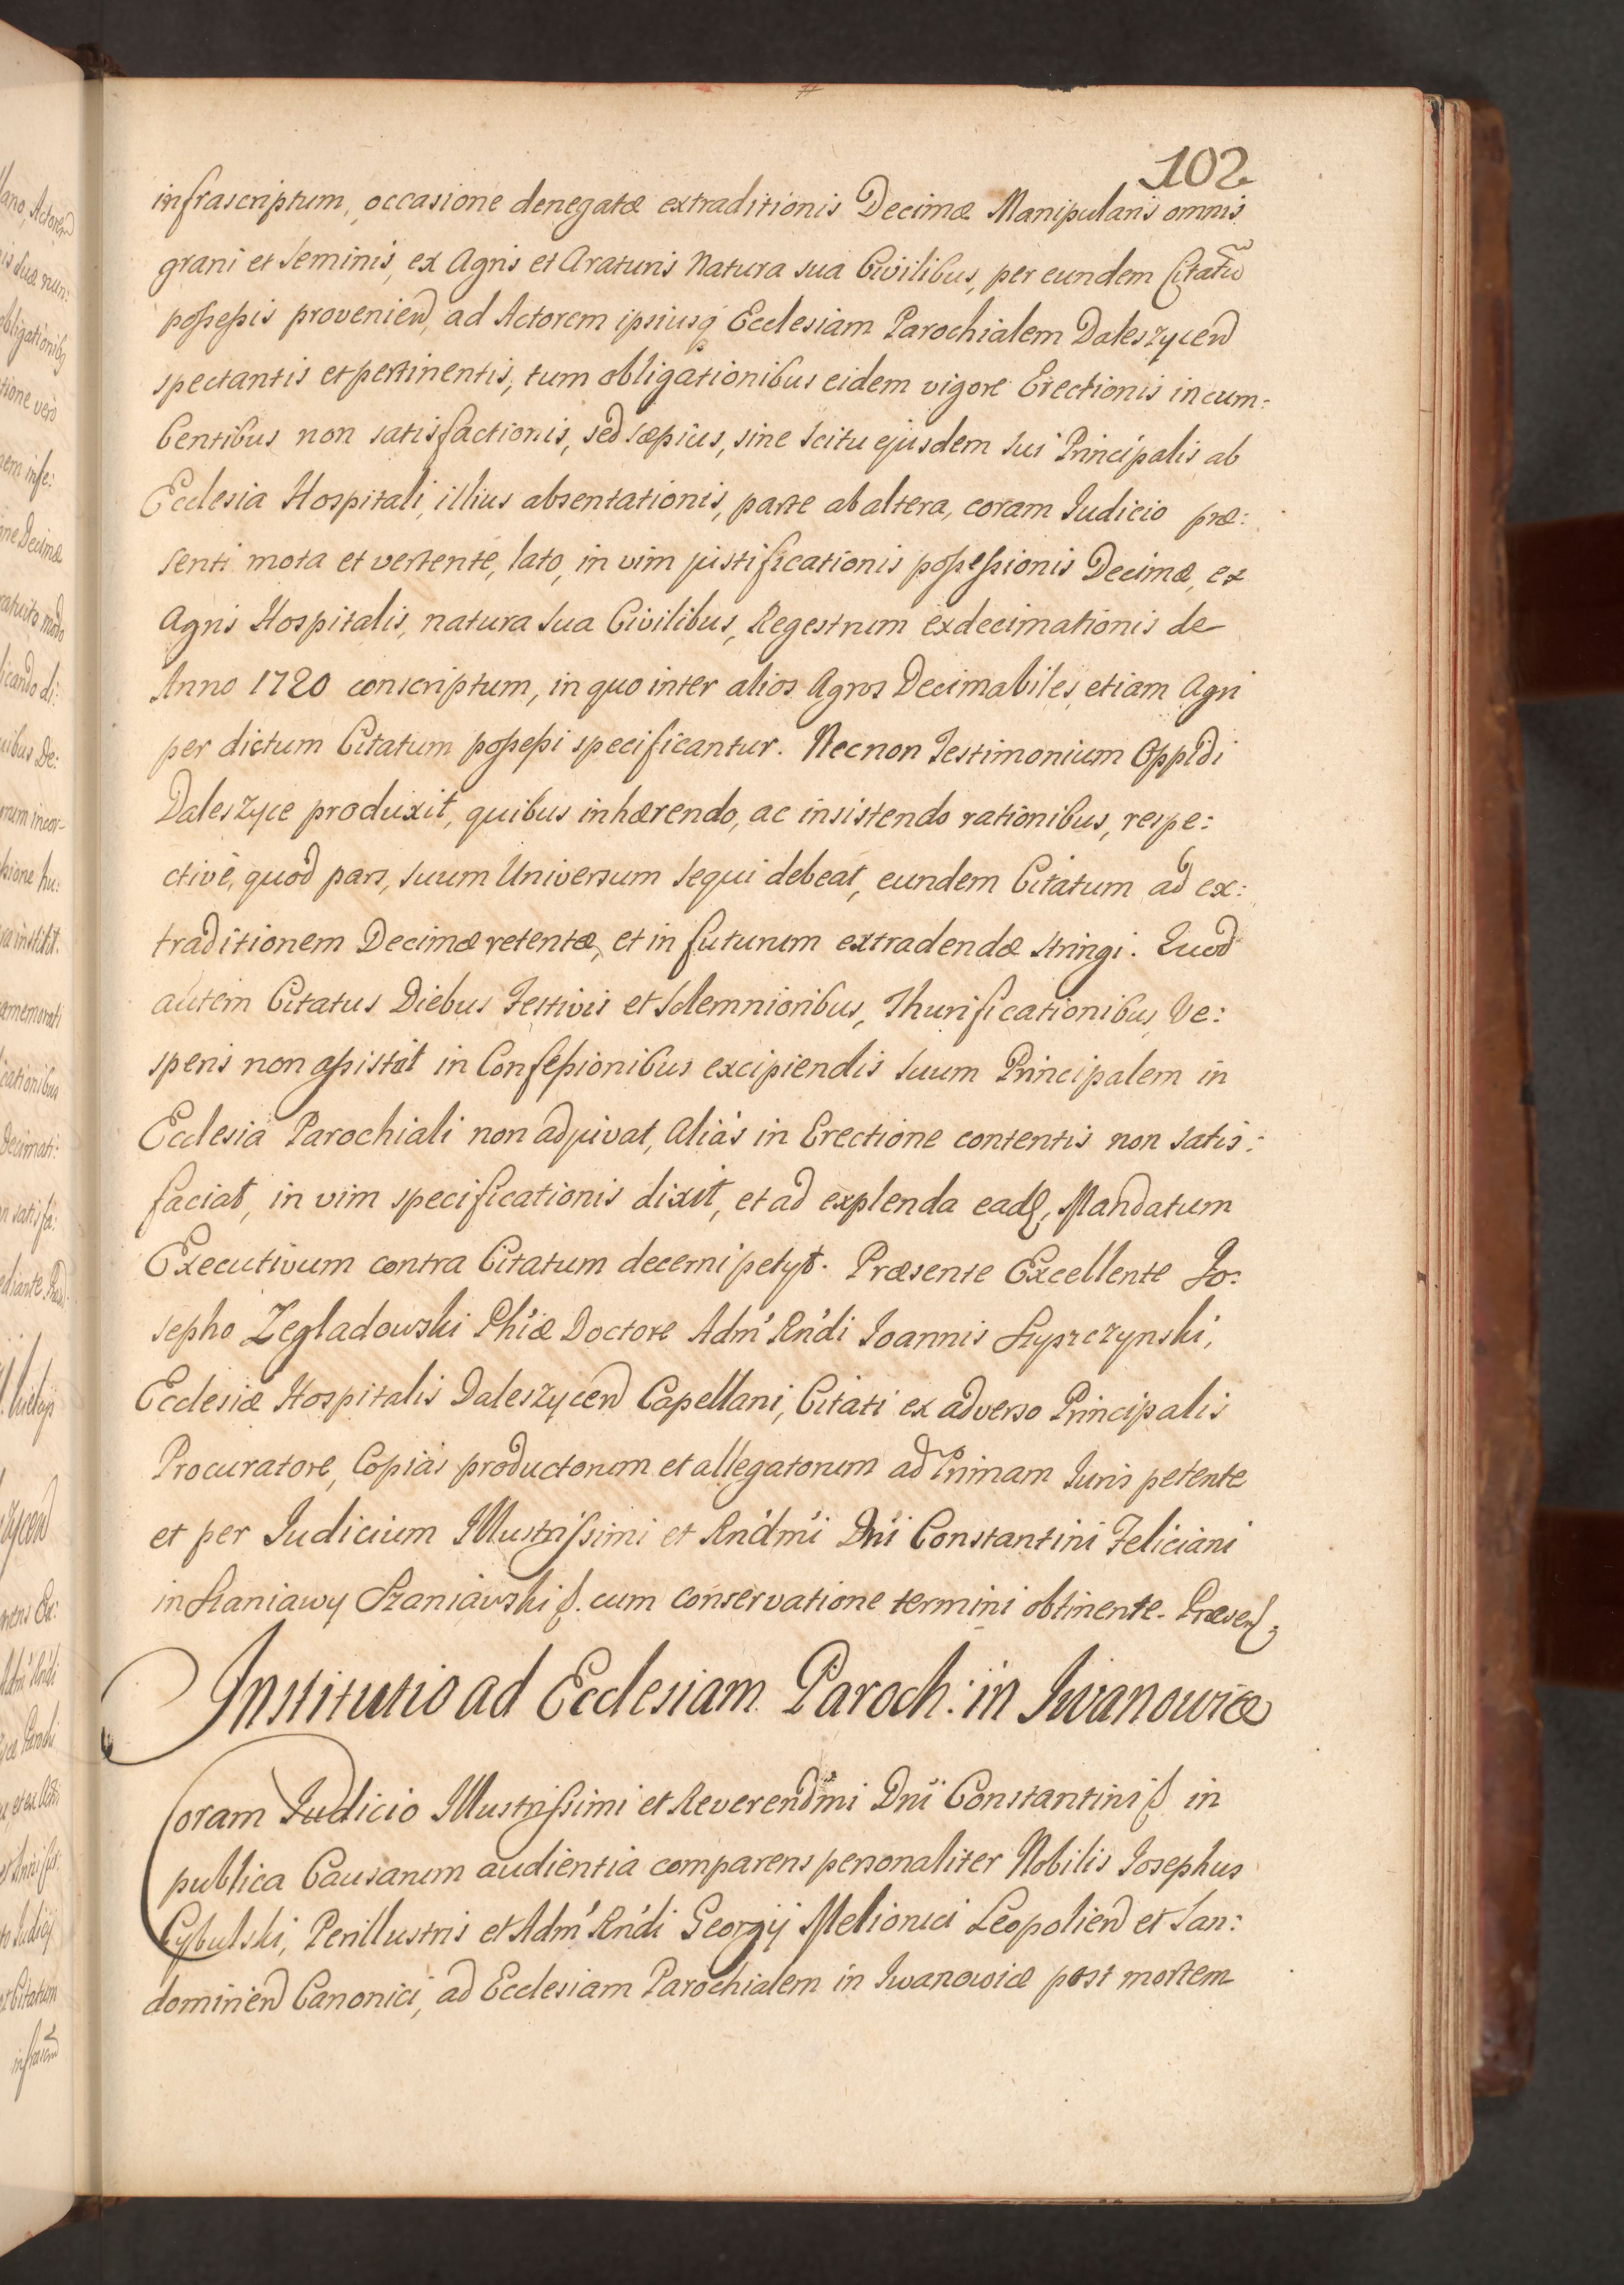 102
infrascriptum, occasione denegatæ extraditionis Decimæ Manipularis omnis
grani et seminis, ex Agris et Araturis Natura sua Civilibus, per eundem Citatũ
possessis provenien, ad Actorem ipsiusq Ecclesiam Parochialem Daleszycen
spectantis et pertinentis, tum obligationibus eidem vigore Erectionis incum:
bentibus non satisfactionis, sed sæpius, sine scitu ejusdem sui Principalis ab
Ecclesia Hospitali, illius absentationis, parte ab altera, coram Iudicio præ:
senti mota et vertente, lato, in vim justificationis possessionis Decimæ, ex
Agris Hospitalis, natura sua Civilibus, Regestrum exdecimationis de
Anno 1720 conscriptum, in quo inter alios Agros Decimabiles, etiam Agri
per dictum Citatum possessi specificantur. Necnon Testimonium Oppidi
Daleszyce produxit, quibus inhærendo, ac insistendo rationibus, respe:
ctivè, quod pars, suum Universum sequi debeat, eundem Citatum ad ex:
traditionem Decimæ retentæ, et in futurum extradendæ stringi. Quod
autem Citatus Diebus Festivis et solemnioribus, Thurificationibus, Ve:
speris non assistat in Confessionibus excipiendis suum Principalem in
Ecclesia Parochiali non adjuvat, aliàs in Erectione contentis non satis:
faciat, in vim specificationis dixit, et ad explenda ead, Mandatum
Executivum contra Citatum decerni petyt. Præsente Excellente Jo:
sepho Zegladowski Phi'æ Doctore Adm' Rn'di Ioannis Szyszczynski,
Ecclesiæ Hospitalis Daleszycen Capellani, Citati ex adverso Principalis
Procuratore, Copiàs productorum et allegatorum ad Primam Iuris petente
et per Iudicium Illustrissimi et Rn'dm'i Dn'i Constantini Feliciani
in Szaniawy Szaniawski p. cum conservatione termini obtinente. Præsen
Institutio ad Ecclesiam Paroch: in Iwanowice
Coram Iudicio Illustrissimi et Reverendmi Dni Constantini p in
publica Causarum audientia comparens personaliter Nobilis Iosephus
Cybulski, Perillustris et Adm' Rn'di Georgij Melionici Leopolien et San:
domirien Canonici, ad Ecclesiam Parochialem in Iwanowice post mortem